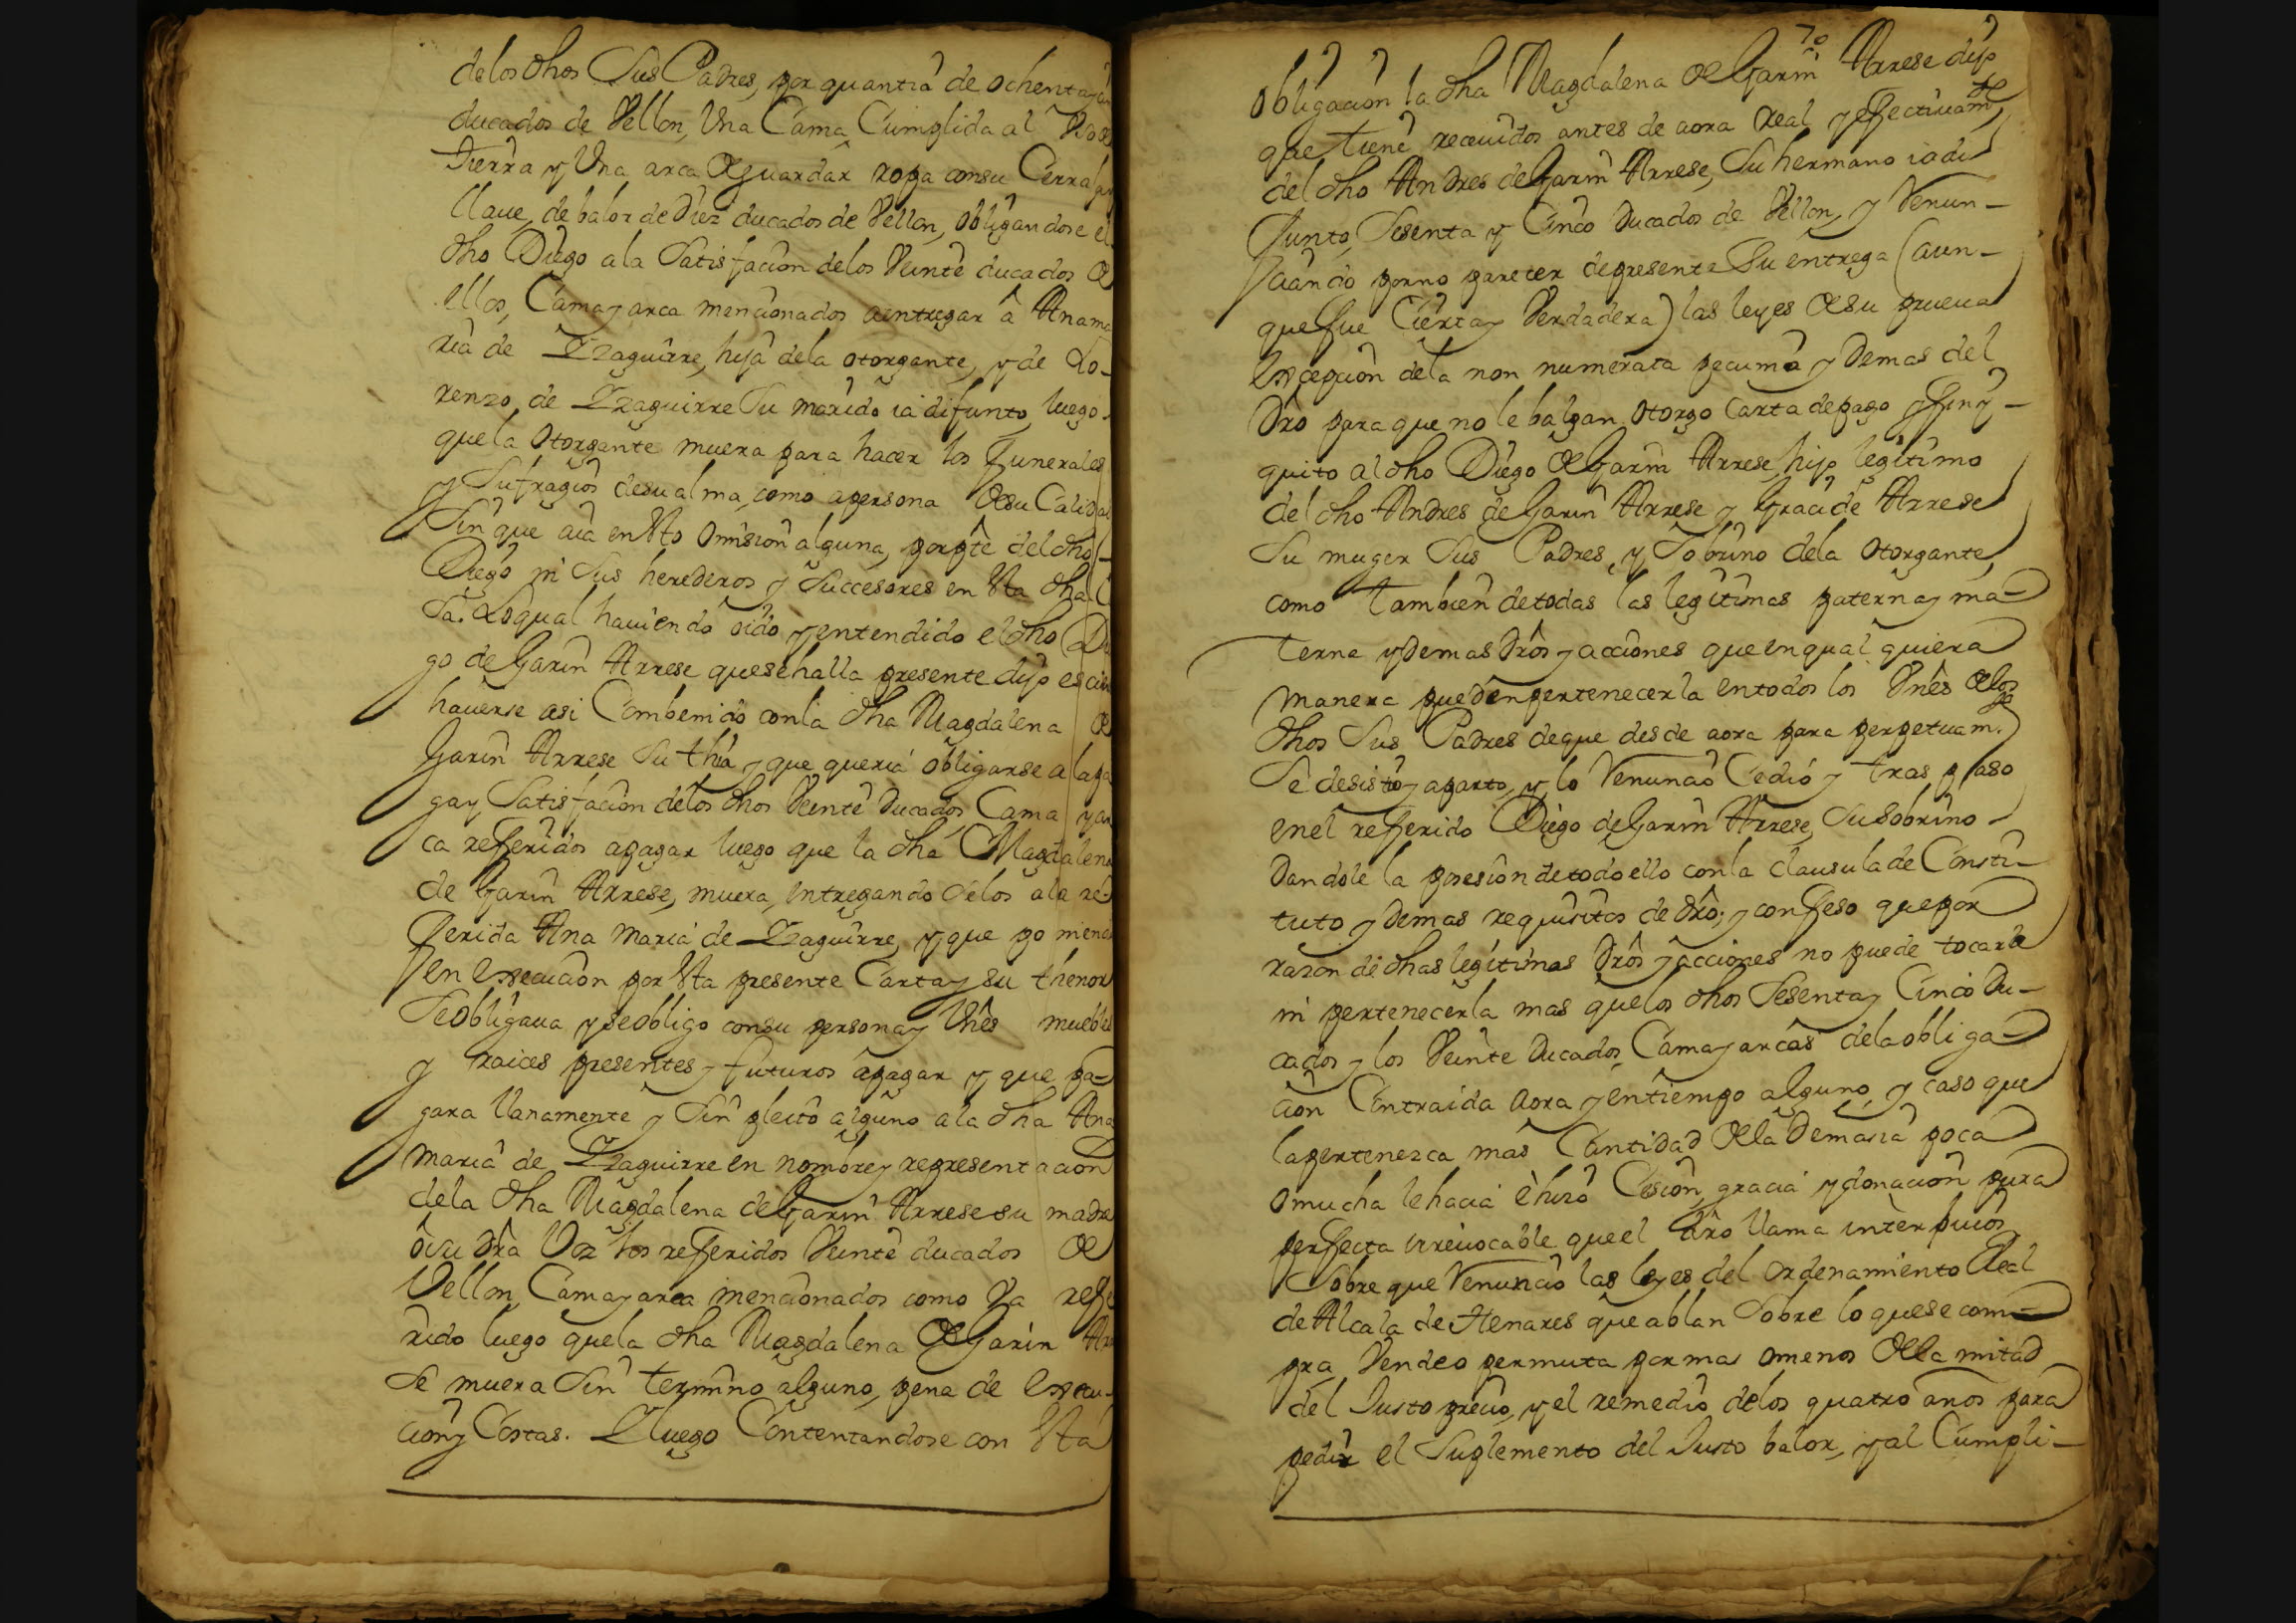 delos dhos Sus Padres, por quantia de ochenta y
ducados de Vellon, Una Cama Cumplida al Vso de
tierra y Una arca de guardar ropa consu Cerraja y
llaue, de balor de Diez ducados de Vellon, obligandose el
dho Diego ala Satisfacion delos Veinte ducados de
ellos, Cama y arca mencionados aentregar â Anama
ria de Yzaguirre, hija dela otorgante, y de Lo-
renzo de Yzaguirre Su marido ia difunto, luego
quela Otorgante muera para hacer los funerales
y Sufragios desu alma, como apersona desu Calidad
Sin que aia en Esto omision alguna, por pte del dho
Diego ni Sus herederos y Succesores en Esta dha Ca
sa. Loqual hauiendo oido y entendido el dho Die
go de Garin Arrese quesehalla presente dijo es cier
hauerse asi Combenido conla dha Magdalena de
Garin Arrese Su thia y que queria obligarse a lapa
ga y Satisfacion delos dhos Veinte Ducados Cama y ar
ca referidos apagar luego que la dha Magdalena
de Garin Arrese, muera, entregando selos ala re-
ferida Ana Maria de Yzaguirre, y que poniend
en execucion por Esta presente Carta y su thenor
Seobligaua y seobligo consu persona y Vnês muebles
y raices presentes y futuros apagar y que pa-
gara llanamente y Sin pleito alguno ala dha Ana
maria de Yzaguirre en nombre y representacion
dela dha Magdalena deGarin Arrese su madre
ô su dra Voz los referidos Veinte ducados de
Vellon, Cama y arca mencionados como Va refe
rido luego quela dha Magdalena de Garin Arre
se muera Sin termino alguno, pena de execu-
cion y Costas. Y luego Contentandose con Esta
70
obligacion la dha Magdalena de Garin Arrese dijo
que tiene receuidos antes de aora real y efectiuamte
del dho Andres de Garin Arrese, Su hermano ia di
funto, Sesenta y Cinco Ducados de Vellon, y Renun-
ciando porno parecer depresente Su entrega (aun-
que fue Cierta y Verdadera) las leyes desu prueua
excepcion dela non numerata pecunia y Demas del
Dro para que no le balgan, otorgo Carta depago y finy-
quito al dho Diego de Garin Arrese, hijo legitimo
del dho Andres de Garin Arrese y Gracia de Arrese
Su muger Sus Padres, y Sobrino dela Otorgante,
como tambien detodas las legitimas paterna y ma-
terna y Demas Drôs y acciones que enqual quiera
manera puedenpertenecerla entodos los Vnês delos
dhos Sus Padres deque desde aora para perpetuam.te
Se desistio y aparto, y lo Renuncio Cedió y traspaso
enel referido Diego deGarin Arrese, Su Sobrino
Dandole la posesion detodoello conla clausula de Consti-
tuto y Demas requisitos de drô; y confeso quepor
razon dedhas legitimas Drôs y acciones no puede tocarle
ni pertenecerla mas quelos dhos Sesenta y Cinco Du-
cados y los Veinte Ducados, Cama y arcas dela obliga-
cion Contraida aora y entiempo alguno, y caso que
lapertenezca mas Cantidad dela Demasia poca
omucha lehacia è hizo Cesion, gracia y donacion pura
perfecta irreuocable que el drô llama inter viuos
Sobre que Renuncio las leyes del ordenamiento Real
de Alcala de Henares que ablan Sobre lo quese com-
pra Vende o permuta por mas omenos dela mitad
del Justo precio, y el remedio delos quatro años para
pedir el Suplemento del Justo balor, y al Cumpli-